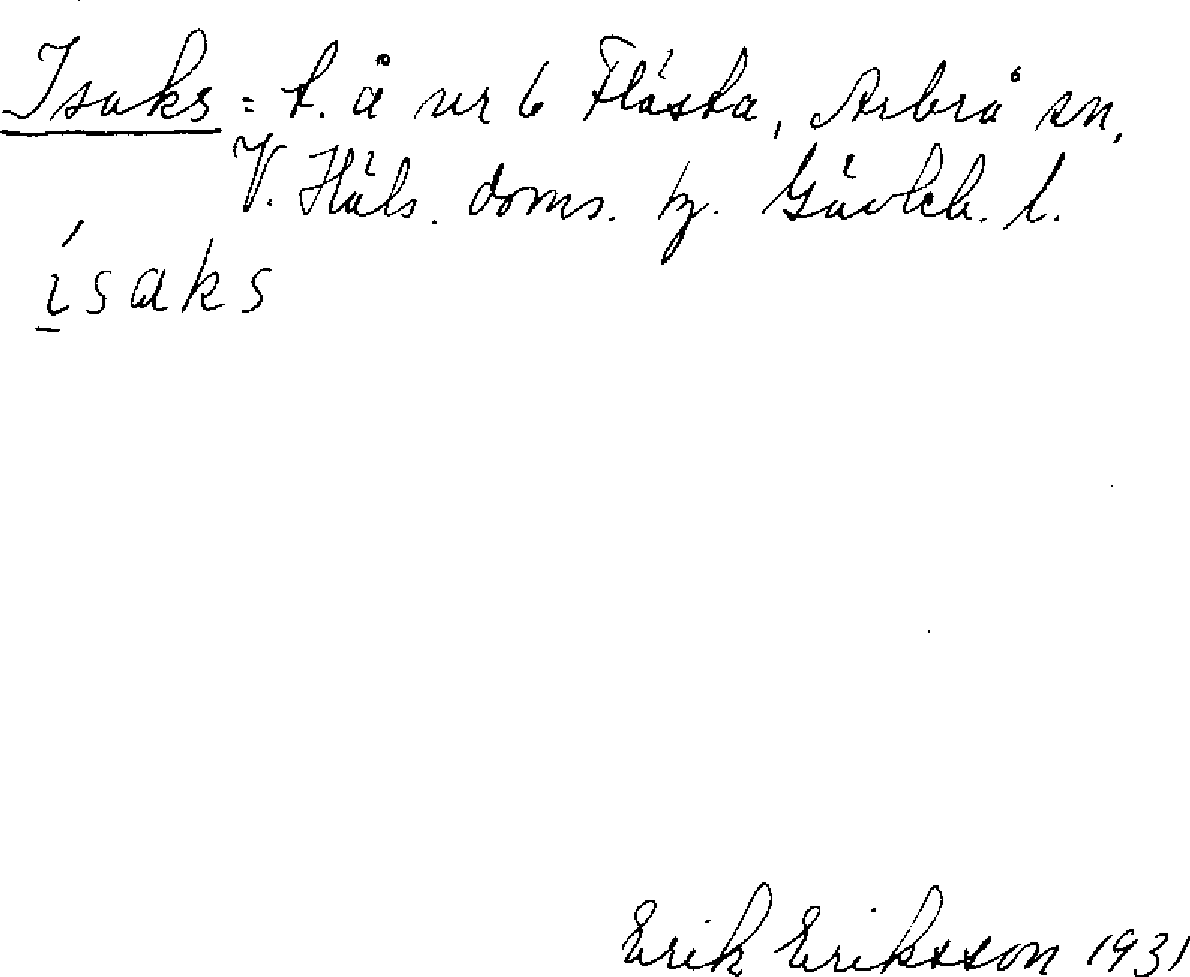 Isaks = t. å nr 6 Flästa, Arbrå sn,
V. Häls. doms. hz. Gävleb. l.
ísaks
Erik Eriksson 1931